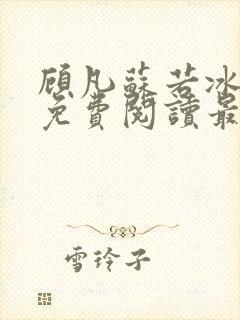 顾凡蘇若冰
免費閱讀最
雪玲子